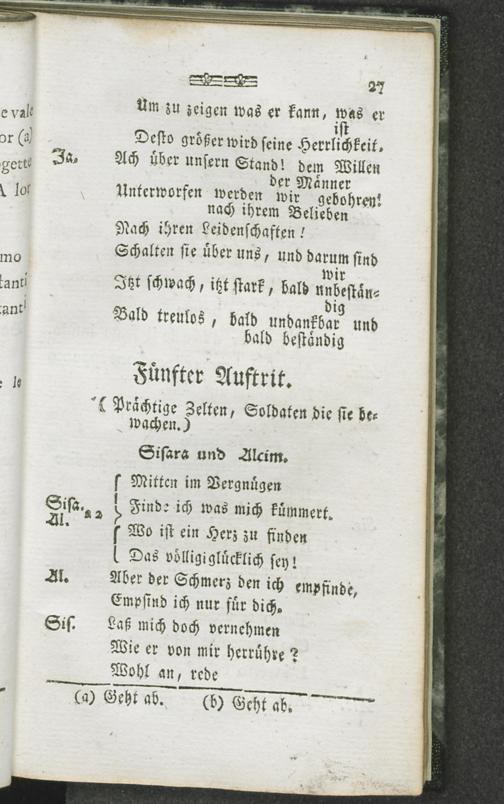 27
Um zu zeigen was er kann, was er
ist
Desto größer wird seine Herrlichkeit.
Ja. Ach über unsern Stand! dem Willen
der Männer
Unterworfen werden wir gebohren!
nach ihrem Belieben
Nach ihren Leidenschaften!
Schalten sie über uns, und darum sind
wir
Itzt schwach, itzt stark, bald unbestän-
dig
Bald treulos, bald undankbar und
bald beständig
Fünfter Auftrit.
(Prächtige Zelten, Soldaten die sie be-
wachen.)
Sisara und Alcim.
Mitten im Vergnügen
Sisa. Al. a 2 Finde ich was mich kümmert.
Wo ist ein Herz zu finden
Das völligiglücklich sey!
Al. Aber der Schmerz den ich empfinde,
Empfind ich nur für dich.
Sis. Laß mich doch vernehmen
Wie er von mir herrühre?
Wohl an, rede
(a) Geht ab. (b) Geht ab.
e vale
or (a)
gette
A lor
mo
tanti
tanti
e le